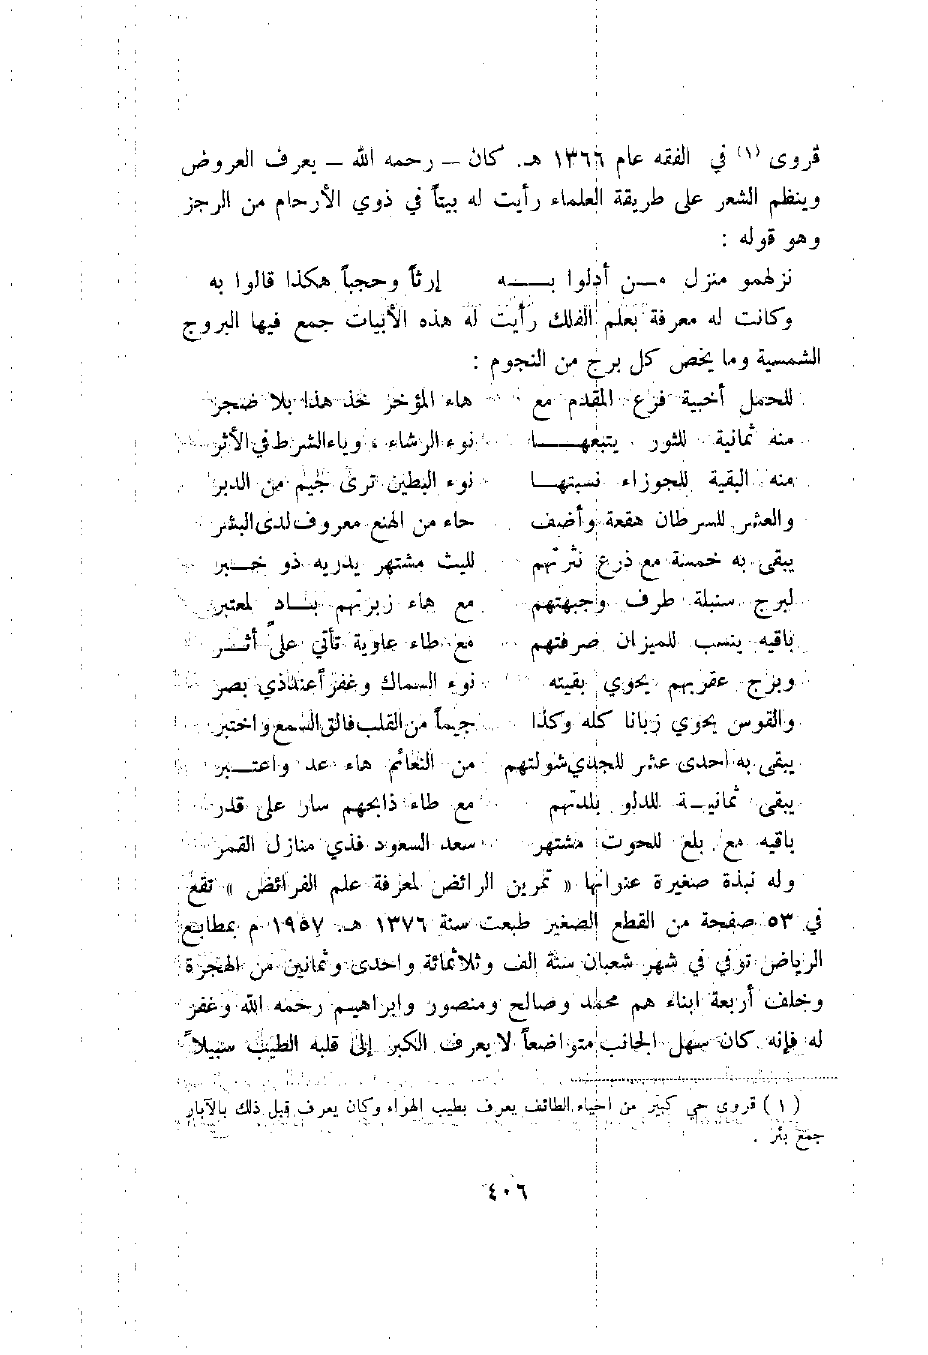 قروى (١) في الفقه عام ١٣٦٦ هـ. كان – رحمه الله – يعرف العروض
وينظم الشعر على طريقة العلماء رأيت له بيتاً في ذوي الأرحام من الرجز
وهو قوله :
نزلهمو منزل مـن أدلوا بـــه إرثاً وحجباً هكذا قالوا به
وكانت له معرفة بعلم الفلك رأيت له هذه الأبيات جمع فيها البروج
الشمسية وما يخص كل برج من النجوم :
للحمل أخبية فرع المقدم مع هاء المؤخر خذ هذا بلا ضجر
منه ثمانية للثور يتبعهـــا نوء الرشاء ، وياء الشرط في الأثر
منه البقية للجوزاء نسبتهـا نوء البطين ترى لجيم من الدبر
والعشر للسرطان هقعة وأضف حاء من الهنع معروف لدى البشر
يبقى به خمسة مع ذرع نثرتهم لليث مشتهر يدريه ذو خـبر
لبرج سنبلة طرف وجبهتهم مع هاء زبرتهم بنـادٍ لمعتبر
باقيه ينسب للميزان صرفتهم مع طاء عاوية تأتي على أثـر
وبرج عقربهم يحوي بقيته نوء السماك وغفراً عند ذي بصر
والقوس يحوي زبانا كله وكذا جيماً من القلب فالق السمع واختبر
يبقى به احدى عشر للجدي شولتهم من النعائم هاء عد واعتـبر
يبقى ثمانيـة للدلو بلدتهم مع طاء ذابحهم سار على قدر
باقيه مع بلع للحوت مشتهر سعد السعود فذي منازل القمر
وله نبذة صغيرة عنوانها « تمرين الرائض لمعرفة علم الفرائض » تقع
في ٥٣ صفحة من القطع الصغير طبعت سنة ١٣٧٦ هـ. ١٩٥٧ م بمطابع
الرياض توفي في شهر شعبان سنة الف وثلاثمائة واحدى وثمانين من الهجرة
وخلف أربعة ابناء هم محمد وصالح ومنصور وابراهيم رحمه الله وغفر
له فإنه كان سهل الجانب متواضعاً لا يعرف الكبر إلى قلبه الطيب سبيلاً
(١) قروى حي كبير من احياء الطائف يعرف بطيب الهواء وكان يعرف قبل ذلك بالآبار
جمع بئر .
٤٠٦